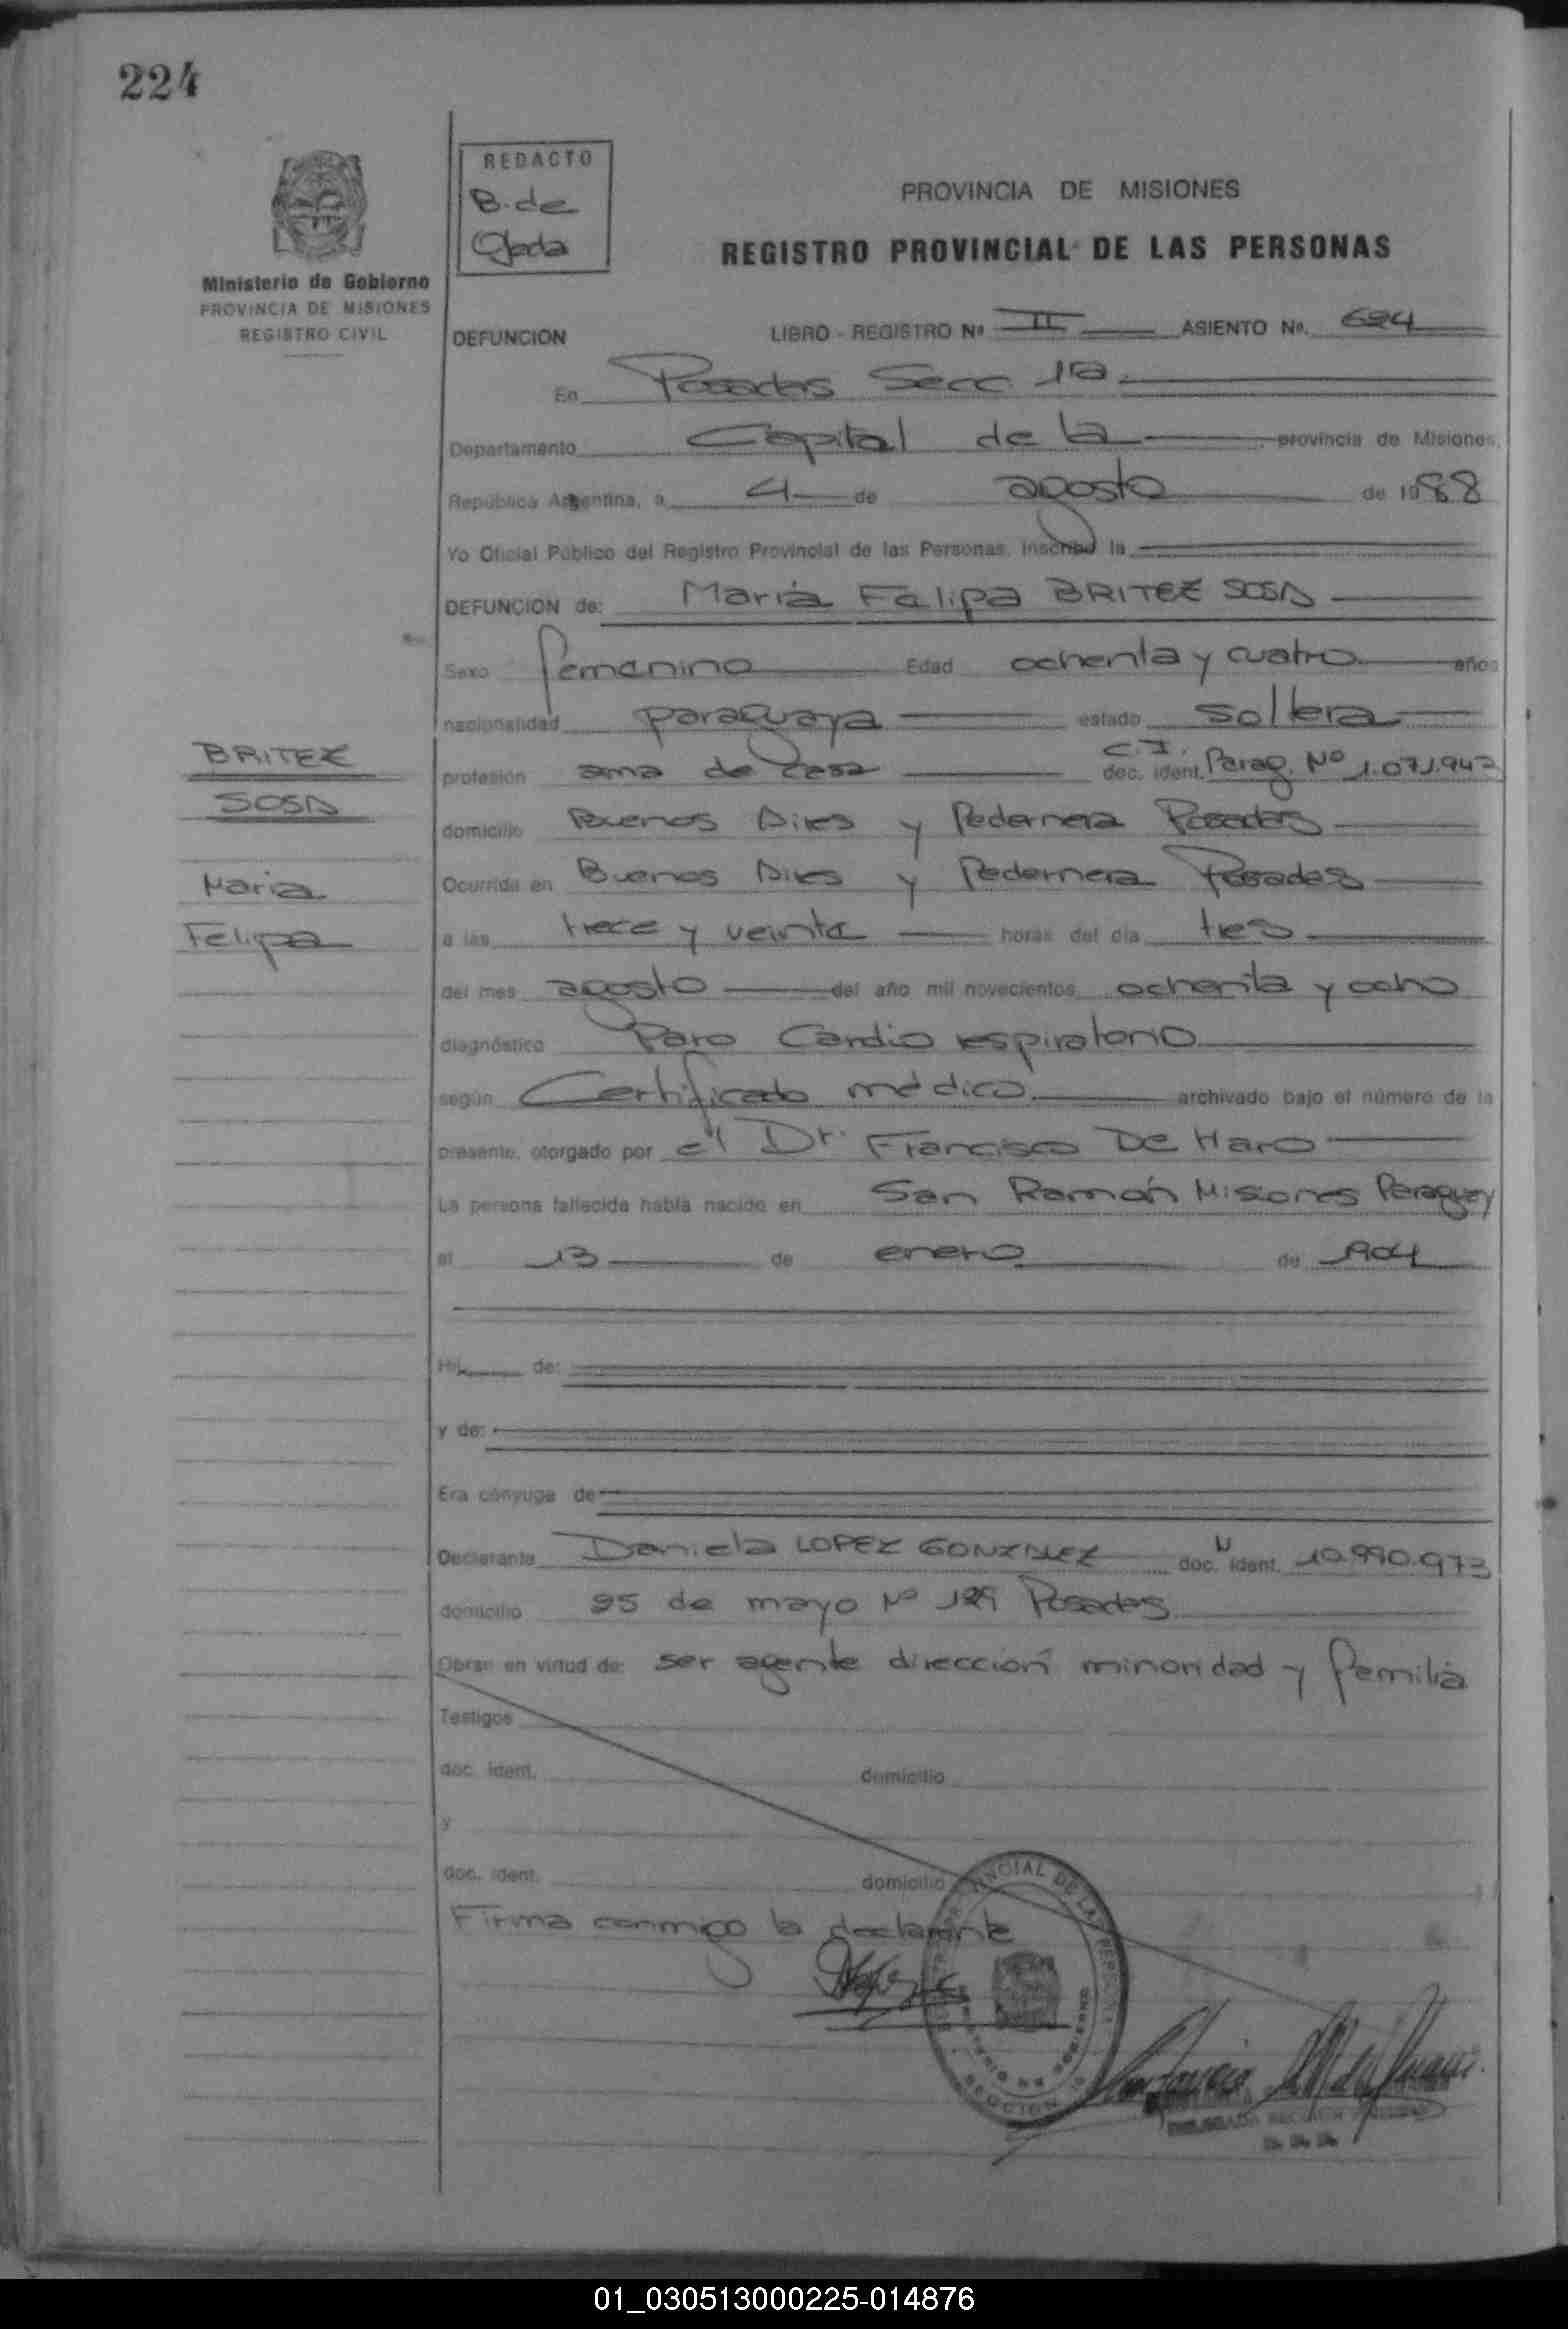 224
REDACTO
B. de
Ojeda
Ministerio de Gobierno
PROVINCIA DE MISIONES
REGISTRO CIVIL
PROVINCIA DE MISIONES
REGISTRO PROVINCIAL DE LAS PERSONAS
DEFUNCION LIBRO - REGISTRO Nº II ASIENTO Nº. 624
En Posadas Secc. 1ra.
Departamento Capital de la provincia de Misiones,
República Argentina, a 4 de agosto de 1988
Yo Oficial Público del Registro Provincial de las Personas, inscribo la
DEFUNCION de: María Felipa BRITEZ SOSA
Sexo femenino Edad ochenta y cuatro años
nacionalidad paraguaya estado soltera
BRITEZ
SOSA
Maria
Felipa
profesión ama de casa C.I. doc. ident. Parag. Nº 1.071.942
domicilio Buenos Aires y Pedernera Posadas
Ocurrida en Buenos Aires y Pedernera Posadas
a las trece y veinte horas del día tres
del mes agosto del año mil novecientos ochenta y ocho
diagnóstico Paro Cardio respiratorio
según Certificado médico archivado bajo el número de la
presente, otorgado por el Dr. Francisco De Haro
La persona fallecida había nacido en San Ramón Misiones Paraguay
el 13 de enero de 1904
Hij de:
y de:
Era cónyuge de
Declarante Daniela LOPEZ GONZALEZ doc. ident. 10.990.973
domicilio 25 de mayo Nº Posadas
Obran en virtud de: ser agente dirección minoridad y familia
Testigos
doc. ident. domicilio
y
doc. ident. domicilio
Firma conmigo la declarante
01_030513000225-014876